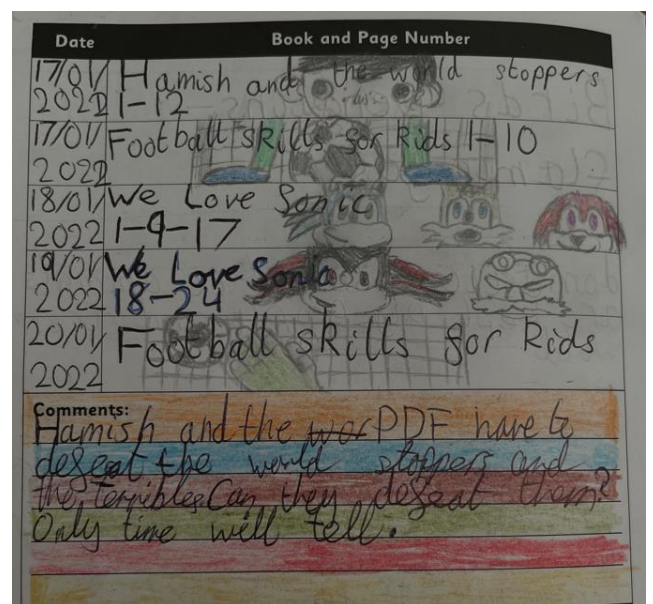 Date Book and Page Number
17/01/ Hamish and the world stoppers
2022 1-12
17/01/ Football skills for kids 1-10
2022
18/01/ We Love Sonic
2022 1-9-17
19/01/ We Love Sonic
2022 18-24
20/01/ Football skills for kids
2022
Comments:
Hamish and the wor PDF have to
defeat the world stoppers and
the terribles. Can they defeat them?
Only time will tell.